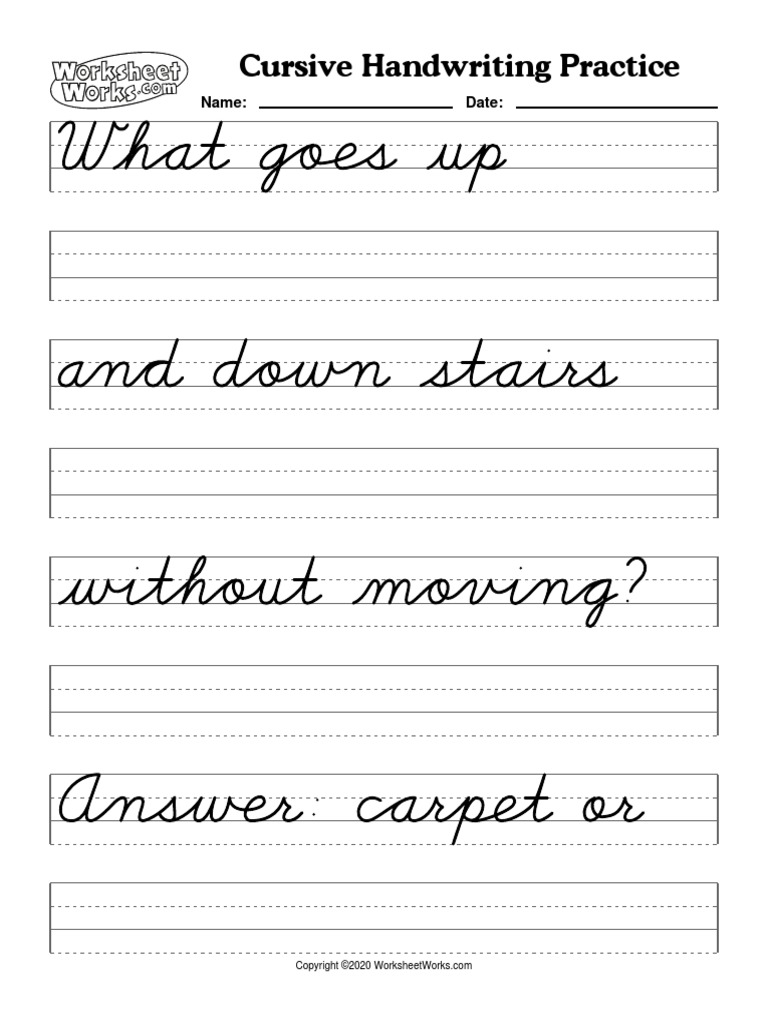 Worksheet
Works.com
Cursive Handwriting Practice
Name: Date:
What goes up
and down stairs
without moving?
Answer: carpet or
Copyright ©2020 WorksheetWorks.com